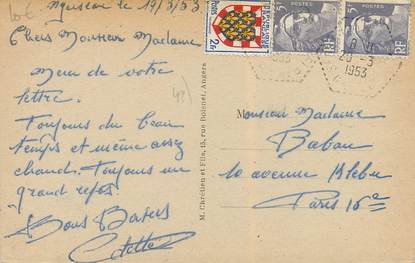 le 19/3/53
Chers Monsieur Madame
Merci de votre
lettre.
Toujours du beau
temps et même assez
chaud. Toujours un
grand repos.
Bons Baisers
M. Chrétien et Fils, 15, rue Boisnet, Angers
POSTES
POSTES
2F
RF
5F
RF
20-3
1953
Monsieur Madame
Babau
10 avenue Kléber
Paris 16e